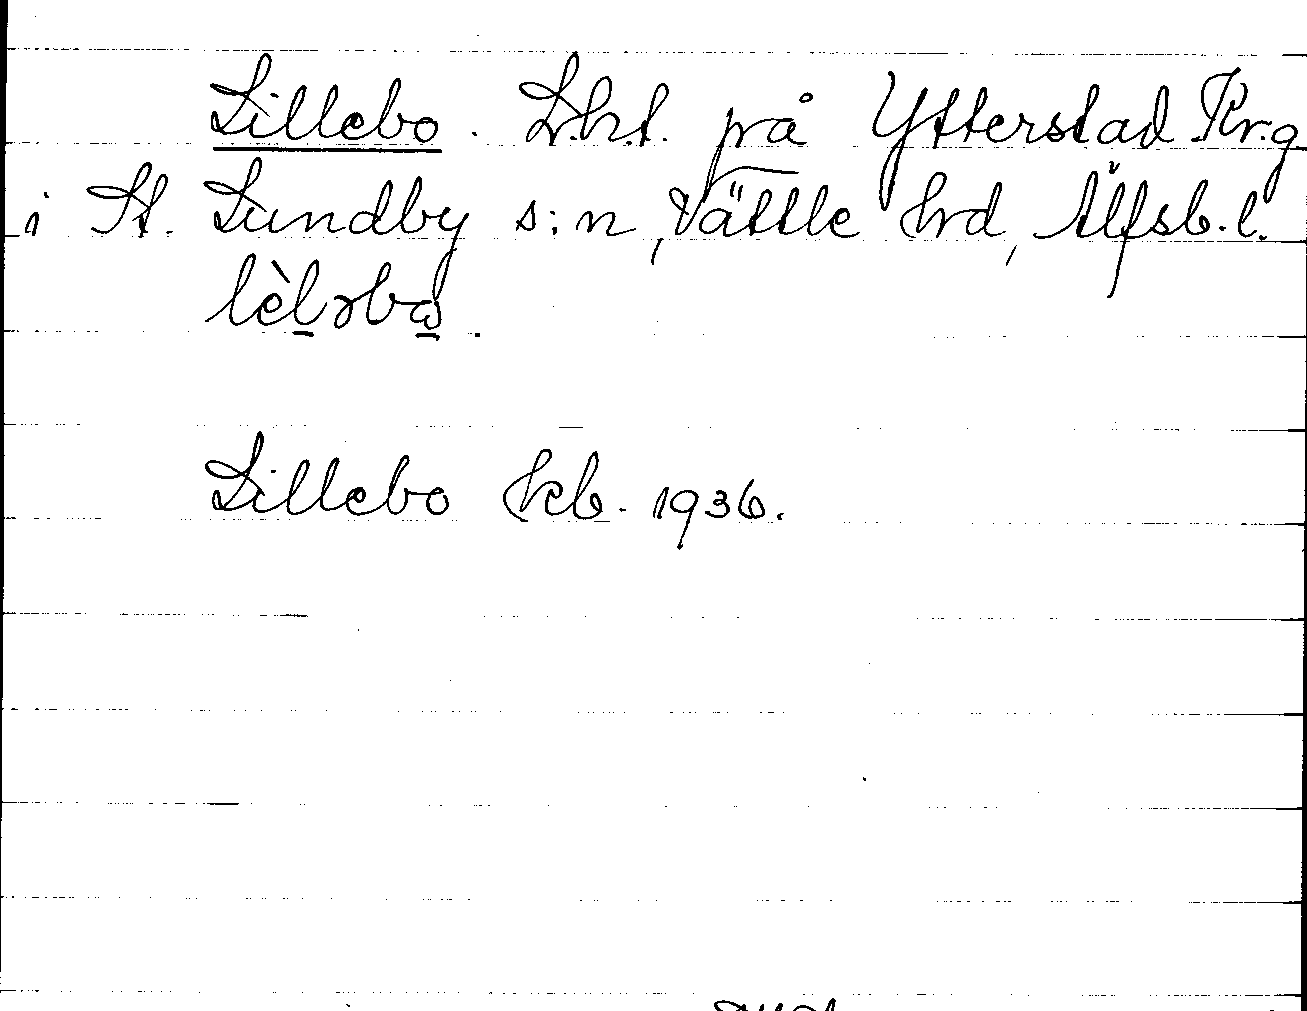 Lillebo. L.h.t. på Ytterstad Kr.g
i St. Lundby s:n, Vättle hrd, Älfsb. l.
lèlərba.
Lillebo kb. 1936.